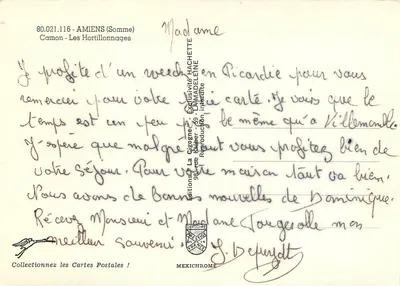 80.021.116 - AMIENS (Somme)
Camon - Les Hortillonnages
Madame
Je profite d'un week en Picardie pour vous
remercier pour votre carte. Je vois que le
temps est un peu le même qu'à Villemomble.
J'espère que malgré tout vous profitez bien de
votre séjour. Pour votre maison tout va bien.
Nous avons de bonnes nouvelles de Dominique.
Recevez Monsieur et Madame mon
meilleur souvenir.
Collectionnez les Cartes Postales !
MEXICHROME
Exclusivité HACHETTE
LA MADELEINE
Reproduction interdite